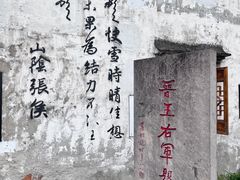 晉王右軍
快雪時晴佳想
未果為結力不次王
山陰張侯